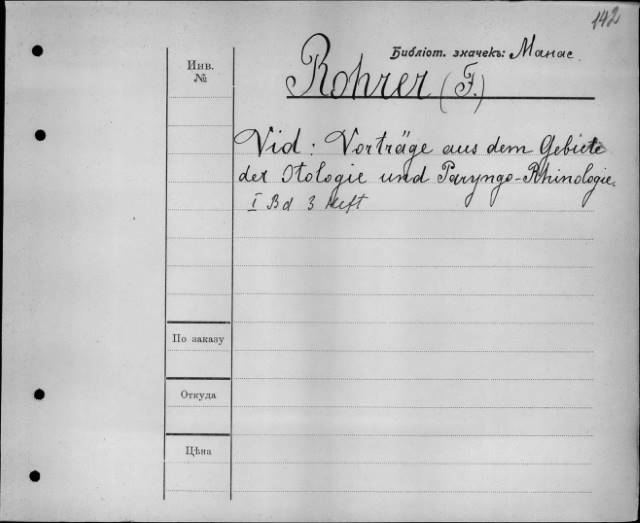 142
Библіот. значекъ: Манас.
Инв.
№
Rohrer (F.)
Vid: Vorträge aus dem Gebiete
der Otologie und Paryngo-Rhinologie.
I Bd 3 Heft
По заказу
Откуда
Цѣна